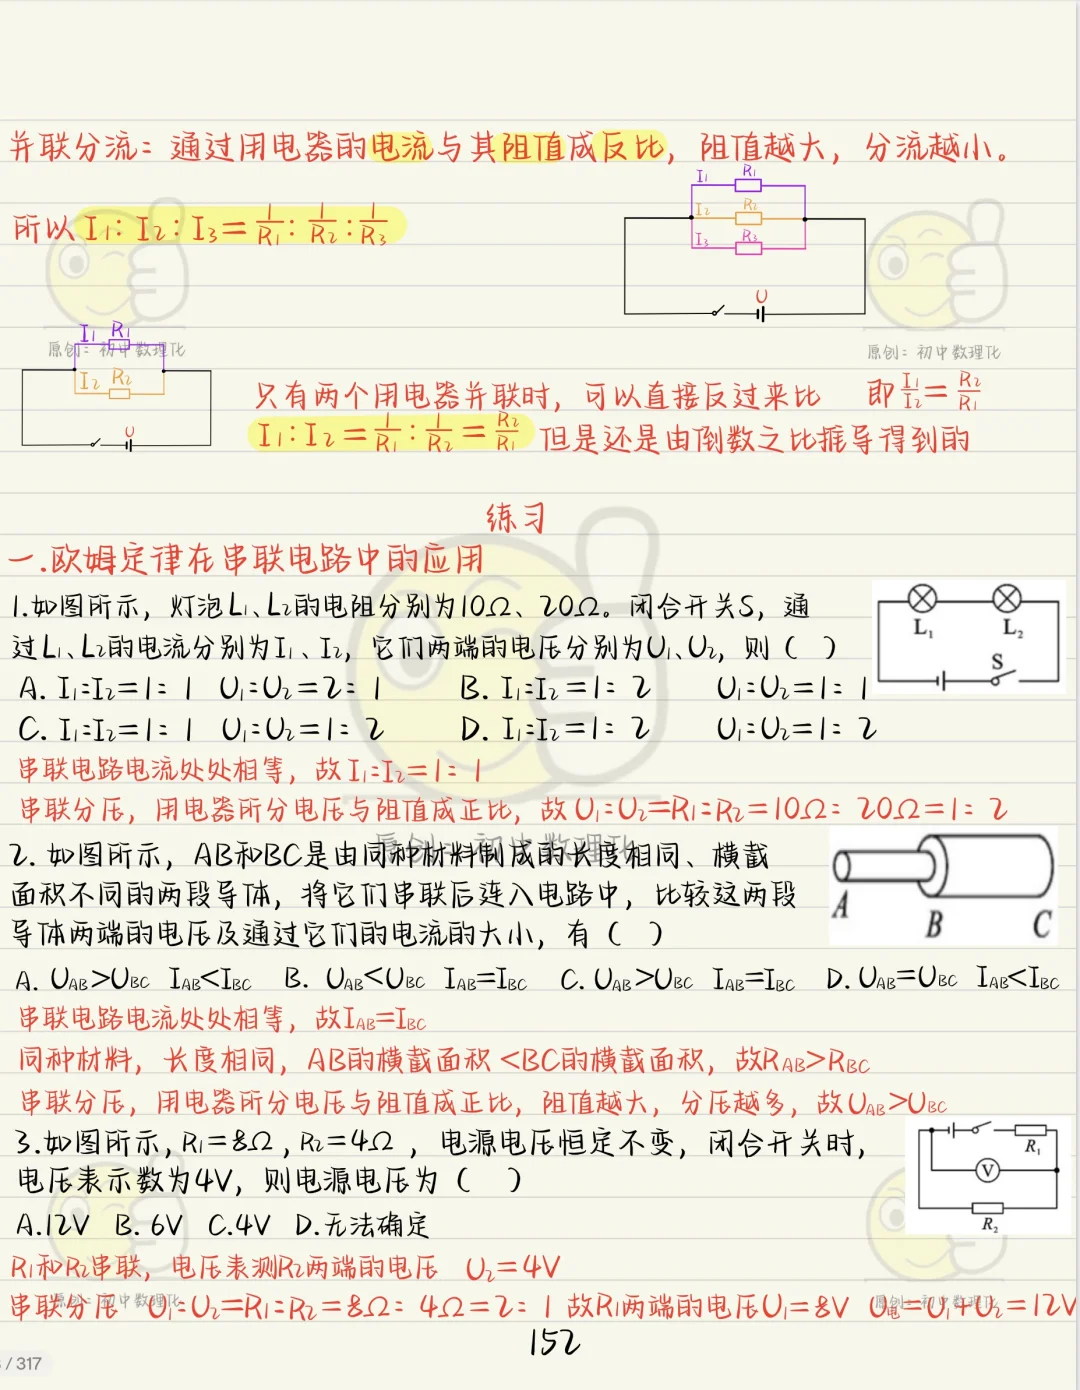 并联分流：通过用电器的电流与其阻值成反比，阻值越大，分流越小。
I₁ R₁
所以 I₁：I₂：I₃＝1/R₁：1/R₂：1/R₃
I₂ R₂
I₃ R₃
U
I₁ R₁
原创：初中数理化
原创：初中数理化
I₂ R₂
U
只有两个用电器并联时，可以直接反过来比 即 I₁/I₂＝R₂/R₁
I₁：I₂＝1/R₁：1/R₂＝R₂/R₁ 但是还是由倒数之比推导得到的
练习
一.欧姆定律在串联电路中的应用
1.如图所示，灯泡L₁、L₂的电阻分别为10Ω、20Ω。闭合开关S，通
过L₁、L₂的电流分别为I₁、I₂，它们两端的电压分别为U₁、U₂，则（ ）
L₁ L₂
S
A. I₁:I₂＝1：1 U₁:U₂＝2：1 B. I₁:I₂＝1：2 U₁:U₂＝1：1
C. I₁:I₂＝1：1 U₁:U₂＝1：2 D. I₁:I₂＝1：2 U₁:U₂＝1：2
串联电路电流处处相等，故I₁:I₂＝1：1
串联分压，用电器所分电压与阻值成正比，故U₁:U₂＝R₁:R₂＝10Ω：20Ω＝1：2
原创：初中数理化
2. 如图所示，AB和BC是由同种材料制成的长度相同、横截
面积不同的两段导体，将它们串联后连入电路中，比较这两段
导体两端的电压及通过它们的电流的大小，有（ ）
A B C
A. UAB>UBC IAB<IBC B. UAB<UBC IAB=IBC C. UAB>UBC IAB=IBC D. UAB=UBC IAB<IBC
串联电路电流处处相等，故IAB=IBC
同种材料，长度相同，AB的横截面积<BC的横截面积，故RAB>RBC
串联分压，用电器所分电压与阻值成正比，阻值越大，分压越多，故UAB>UBC
3.如图所示，R₁＝8Ω，R₂＝4Ω，电源电压恒定不变，闭合开关时，
电压表示数为4V，则电源电压为（ ）
R₁
V
R₂
A.12V B. 6V C.4V D.无法确定
R₁和R₂串联，电压表测R₂两端的电压 U₂＝4V
原创：初中数理化
原创：初中数理化
串联分压 U₁:U₂＝R₁:R₂＝8Ω：4Ω＝2：1 故R₁两端的电压U₁＝8V U电＝U₁+U₂＝12V
152
/ 317